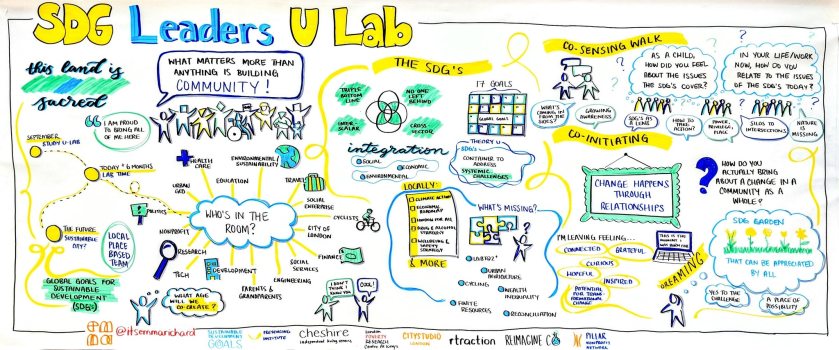 SDG Leaders U Lab
this land is
sacred
WHAT MATTERS MORE THAN
ANYTHING IS BUILDING
COMMUNITY!
I AM PROUD
TO BRING ALL
OF ME HERE
SEPTEMBER
STUDY U-LAB
TODAY + 6 MONTHS
LAB TIME
THE FUTURE
SUSTAINABLE
CITY?
LOCAL
PLACE
BASED
TEAM
GLOBAL GOALS FOR
SUSTAINABLE
DEVELOPMENT
(SDGs)
WHO'S IN THE
ROOM?
HEALTH
CARE
ENVIRONMENTAL
SUSTAINABILITY
EDUCATION
TRAVEL
URBAN
POLITICS
SOCIAL
ENTERPRISE
CYCLISTS
CITY OF
LONDON
NONPROFIT
FINANCE
RESEARCH
SOCIAL
SERVICES
TECH
DEVELOPMENT
ENGINEERING
PARENTS &
GRANDPARENTS
WHAT AGE
WILL WE
CO-CREATE?
I DON'T
THINK I
KNOW YOU
COOL!
THE SDG'S
TRIPLE
BOTTOM
LINE
NO ONE
LEFT
BEHIND
CROSS
SECTOR
17 GOALS
GLOBAL GOALS
integration
SOCIAL
ECONOMIC
ENVIRONMENTAL
THEORY U
SDG's
CONTAINER TO
ADDRESS
SYSTEMIC
CHALLENGES
LOCALLY:
CLIMATE ACTION
ECONOMIC
ROADMAP
LONDON FOR ALL
DRUG & ALCOHOL
STRATEGY
INCLUSIVE &
SAFETY
STRATEGY
& MORE
WHAT'S MISSING?
URBAN
AGRICULTURE
CYCLING
HEALTH
INEQUALITY
FINITE
RESOURCES
RECONCILIATION
CO-SENSING WALK
WHAT'S
COMING IN
FROM THE
SIDES?
GROWING
AWARENESS
AS A CHILD,
HOW DID YOU FEEL
ABOUT THE ISSUES
THE SDG'S COVER?
IN YOUR LIFE/WORK
NOW, HOW DO YOU
RELATE TO THE ISSUES
OF THE SDG'S TODAY?
SDG's AS
A LENS
HOW TO
TAKE
ACTION?
POWER,
PRIVILEGE,
PLACE
SILOS TO
INTERSECTIONS
NATURE IS
MISSING
CO-INITIATING
CHANGE HAPPENS
THROUGH
RELATIONSHIPS
HOW DO YOU
ACTUALLY BRING
ABOUT A CHANGE IN A
COMMUNITY AS A
WHOLE?
I'M LEAVING FEELING...
CONNECTED
GRATEFUL
CURIOUS
HOPEFUL
INSPIRED
POTENTIAL
FOR TRANS
FORMATIONAL
CHANGE
THIS IS THE
MOMENT I
WAS BORN FOR
DREAMING
SDG GARDEN
THAT CAN BE APPRECIATED
BY ALL
YES TO THE
CHALLENGE
A PLACE OF
POSSIBILITY
@itsemmarichard
SUSTAINABLE
DEVELOPMENT
GOALS
PRESENCING
INSTITUTE
cheshire
independent living
London
POVERTY
RESEARCH
CITYSTUDIO
LONDON
rtraction
REIMAGINE CO
PILLAR
NONPROFIT
NETWORK